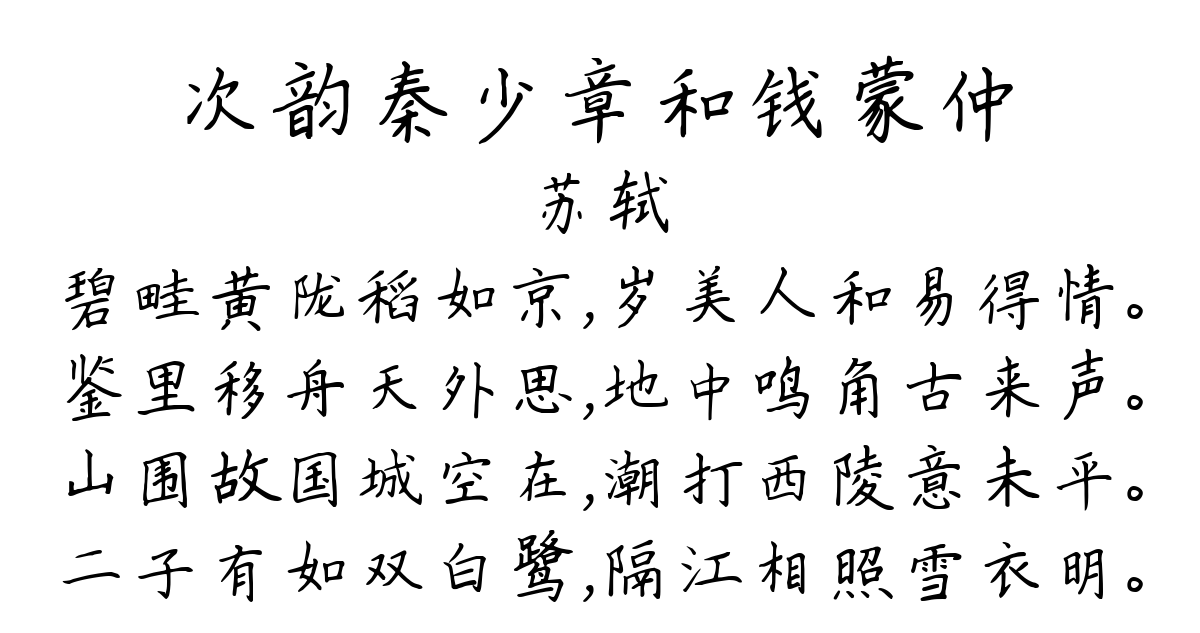 次韵秦少章和钱蒙仲
苏轼
碧畦黄陇稻如京,岁美人和易得情。
鉴里移舟天外思,地中鸣角古来声。
山围故国城空在,潮打西陵意未平。
二子有如双白鹭,隔江相照雪衣明。